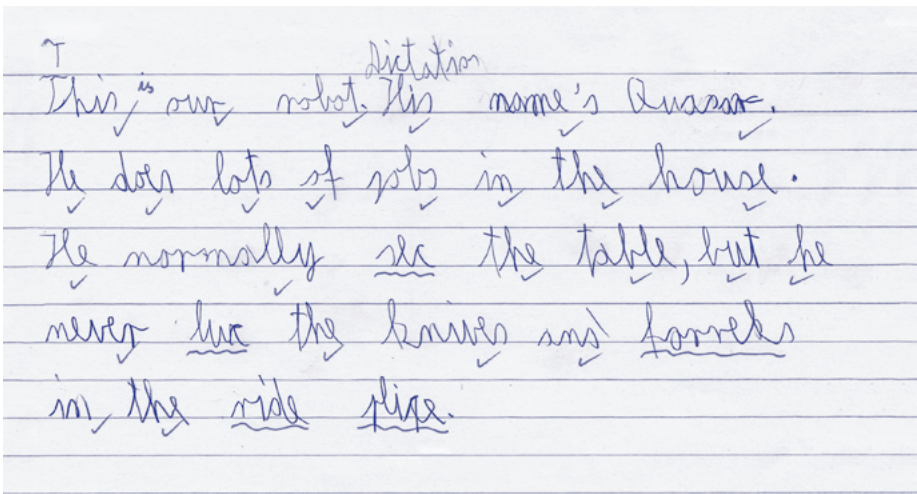 T
Dictation
This is our robot. His name's Quasar.
He does lots of jobs in the house.
He normally sec the table, but he
never luc the knives and forreks
in the ride plize.